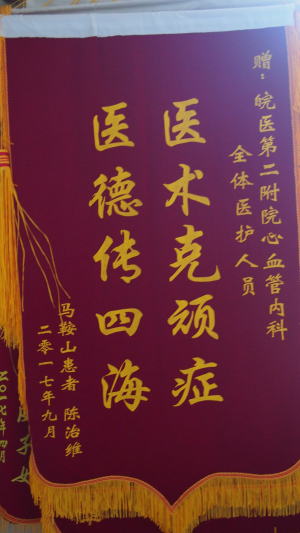 赠：皖医第二附院心血管内科
全体医护人员
医术克顽症
医德传四海
马鞍山患者 陈治维
二零一七年九月
二〇一七年四月